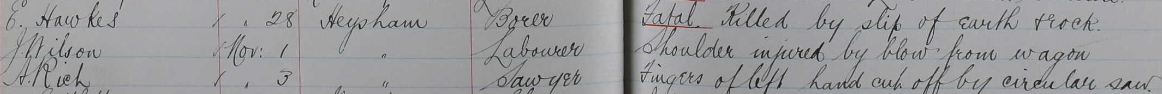 E. Hawkes " " 28 Heysham Borer Fatal. Killed by slip of earth & rock.
J Wilson " Nov: 1 " Labourer Shoulder injured by blow from wagon
A. Rich " " 3 " Sawyer Fingers of left hand cut off by circular saw.